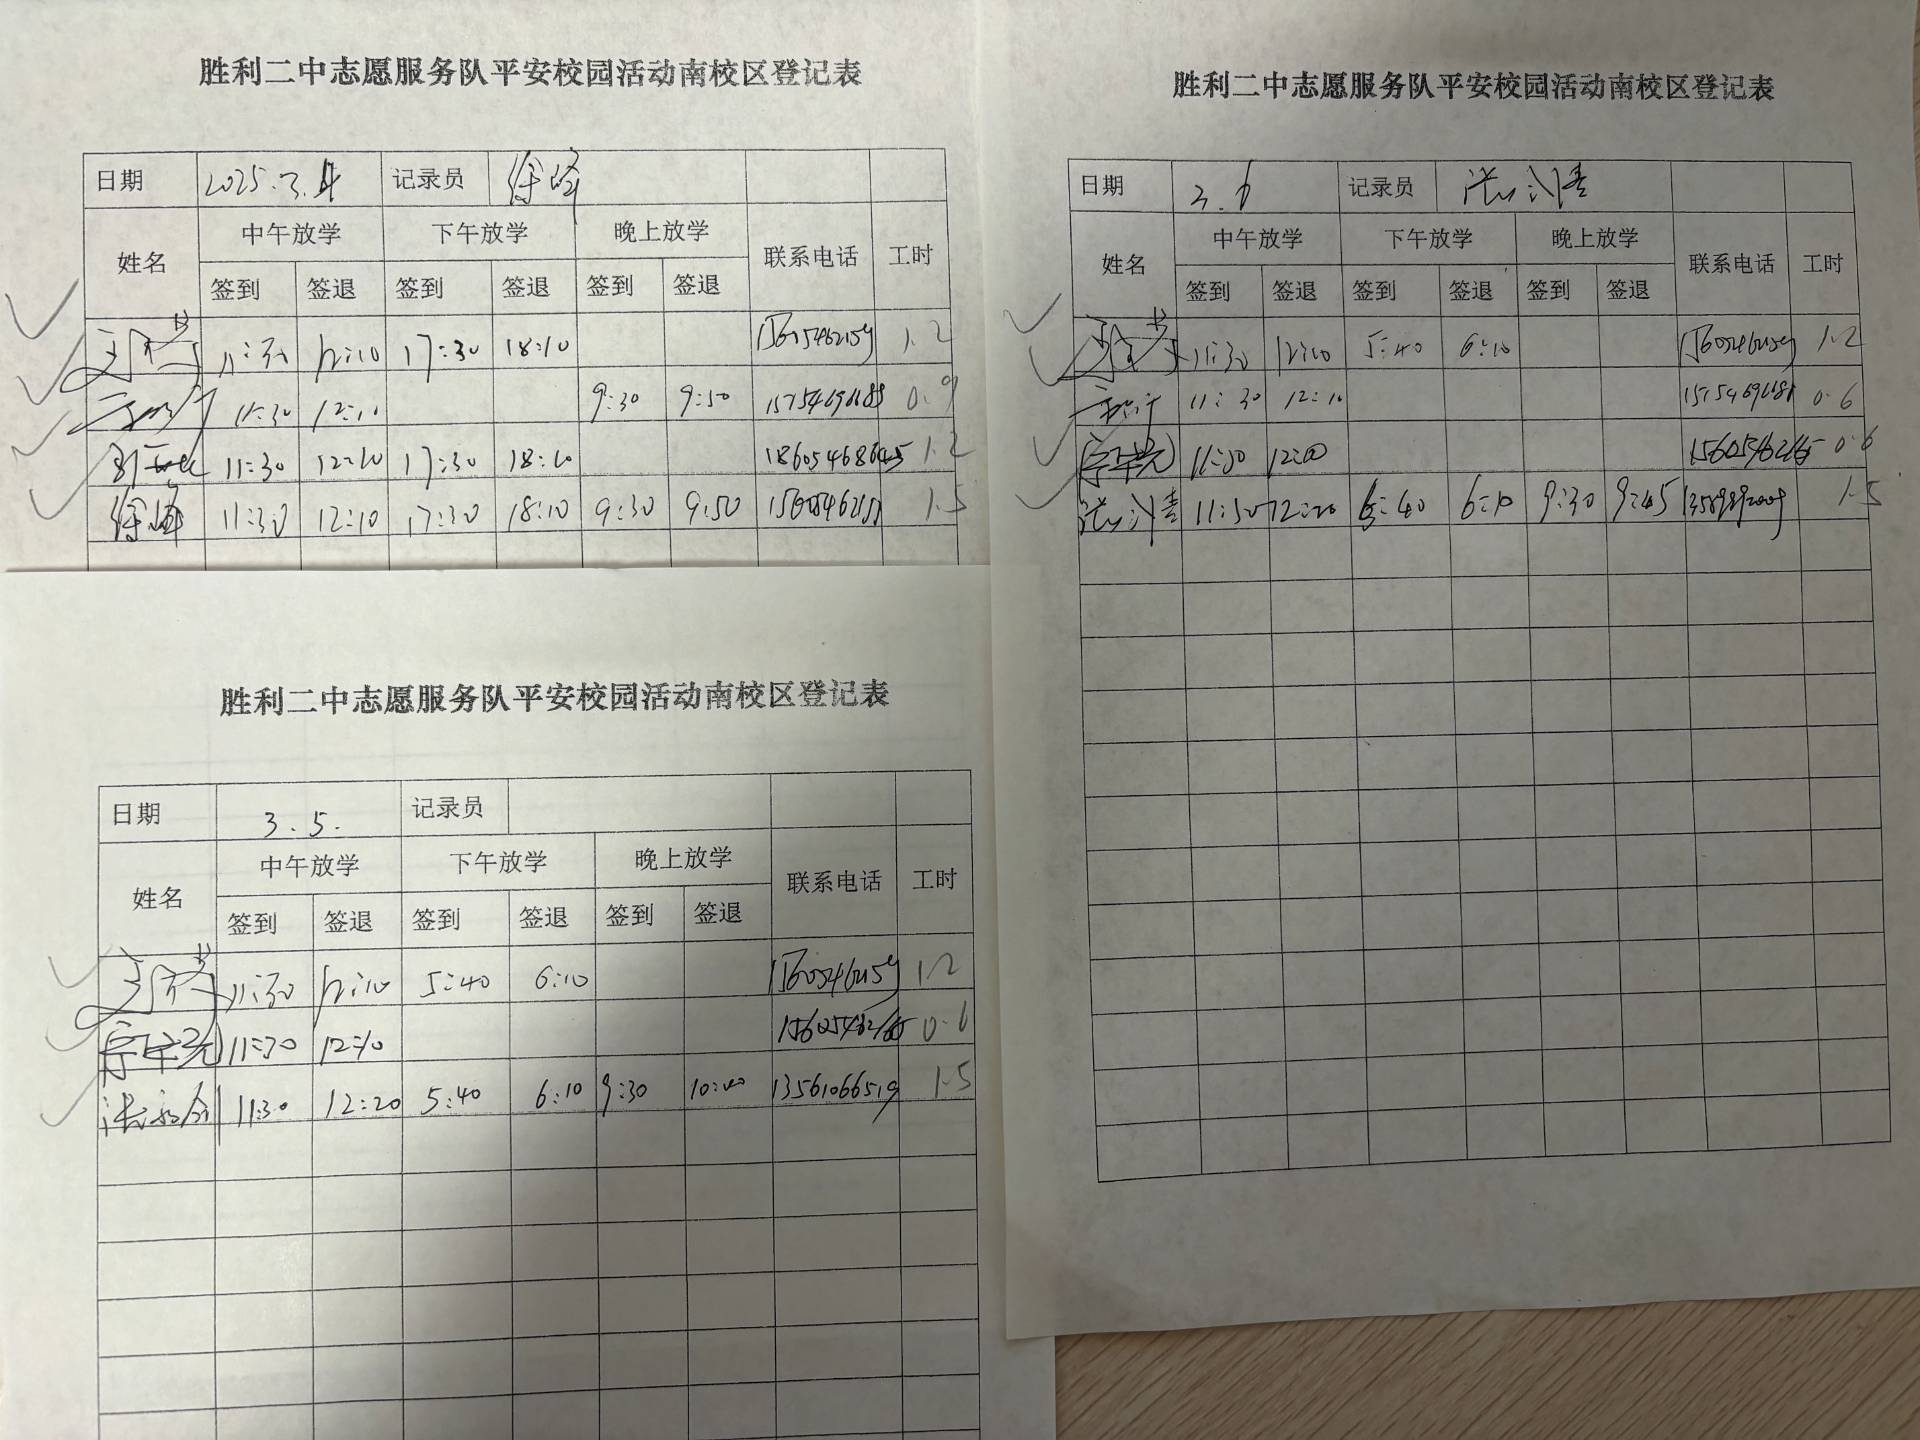 胜利二中志愿服务队平安校园活动南校区登记表
日期 2025.3.4 记录员 徐峰
姓名 中午放学 下午放学 晚上放学 联系电话 工时
签到 签退 签到 签退 签到 签退
11:30 12:10 17:30 18:10 1.2
11:30 12:10 9:30 9:50 0.9
11:30 12:10 17:30 18:10 18605468645 1.2
徐峰 11:30 12:10 17:30 18:10 9:30 9:50 1.5
胜利二中志愿服务队平安校园活动南校区登记表
日期 3.5. 记录员
姓名 中午放学 下午放学 晚上放学 联系电话 工时
签到 签退 签到 签退 签到 签退
11:30 12:10 5:40 6:10 1.2
11:30 12:10 0.6
11:30 12:20 5:40 6:10 9:30 10:00 13561066519 1.5
胜利二中志愿服务队平安校园活动南校区登记表
日期 3.6 记录员
姓名 中午放学 下午放学 晚上放学 联系电话 工时
签到 签退 签到 签退 签到 签退
11:30 12:10 5:40 6:10 1.2
11:30 12:10 0.6
11:30 12:00 0.6
11:30 12:20 5:40 6:10 9:30 9:45 1.5